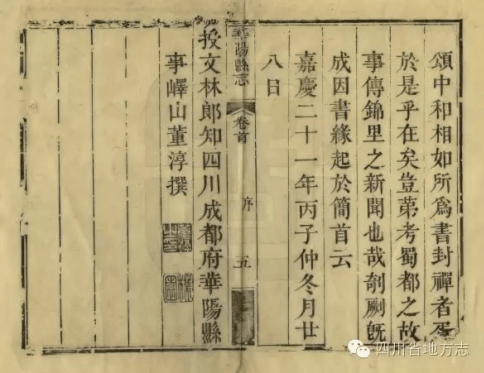 頌中和相如所爲書封禪者胥
於是乎在矣豈第考蜀都之故
事傳錦里之新聞也哉剞劂旣
成因書緣起於簡首云
嘉慶二十一年丙子仲冬月廿
八日
華陽縣志
卷首
序
五
授文林郎知四川成都府華陽縣
事嶧山董淳撰
四川省地方志